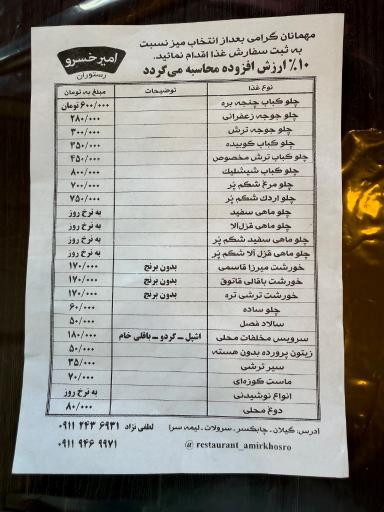 مهمانان گرامی بعد از انتخاب میز نسبت
به ثبت سفارش غذا اقدام نمائید..
۱۰٪ ارزش افزوده محاسبه می‌گردد
امیرخسرو
رستوران
نوع غذا توضیحات مبلغ به تومان
چلو کباب چنجه بره ۶۰۰/۰۰۰ تومان
چلو جوجه زعفرانی ۲۸۰/۰۰۰
چلو جوجه ترش ۳۰۰/۰۰۰
چلو کباب کوبیده ۳۵۰/۰۰۰
چلو کباب ترش مخصوص ۴۵۰/۰۰۰
چلو کباب شیشلیک ۸۰۰/۰۰۰
چلو مرغ شکم پر ۷۰۰/۰۰۰
چلو اردک شکم پر ۷۵۰/۰۰۰
چلو ماهی سفید به نرخ روز
چلو ماهی قزل‌آلا به نرخ روز
چلو ماهی سفید شکم پر به نرخ روز
چلو ماهی قزل آلا شکم پر به نرخ روز
خورشت میرزا قاسمی بدون برنج ۱۷۰/۰۰۰
خورشت باقالی قاتوق بدون برنج ۱۷۰/۰۰۰
خورشت ترشی تره بدون برنج ۱۷۰/۰۰۰
چلو ساده ۶۰/۰۰۰
سالاد فصل ۵۰/۰۰۰
سرویس مخلفات محلی اشپل ـ گردو ـ باقلی خام ۱۸۰/۰۰۰
زیتون پرورده بدون هسته ۵۰/۰۰۰
سیر ترشی ۳۵/۰۰۰
ماست کوزه‌ای ۷۰/۰۰۰
انواع نوشیدنی به نرخ روز
دوغ محلی ۸۰/۰۰۰
آدرس: گیلان . چابکسر . سرولات . لیمه سرا لطفی نژاد ۰۹۱۱ ۲۴۳ ۶۹۳۱
@ restaurant_amirkhosro ۰۹۱۱ ۹۴۶ ۹۹۷۱